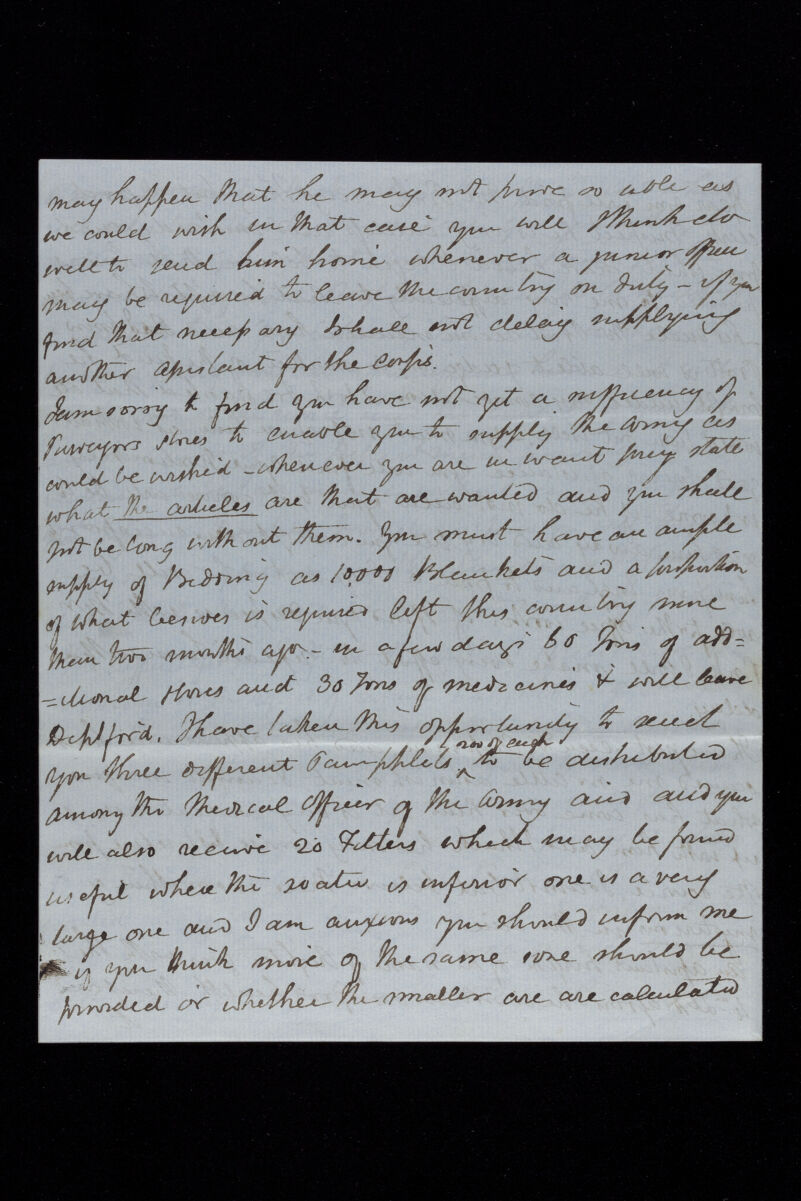 may happen that he may not prove so able as
we could wish in that case you will I think do
well to send him home whenever a junior officer
may be required to leave the country on duty – if you
find that necessary I shall not delay supplying
another assistant for the corps.
I am sorry to find you have not yet a sufficiency of
Purveyors stores to enable you to supply the army as
could be wished – whenever you are in want pray state
what the articles are that are wanted and you shall
not be long without them. You must have an ample
supply of Bedding as 10,000 Blankets and a proportion
of what besides is required left this country more
than two months ago – in a few days 60 Tons of add=
=itional stores and 30 Tons of medicines & will leave
Deptford. I have taken this opportunity to send
you three different Pamphlets ^ 200 of each to be distributed
among the Medical Officer of the Army and and you
will also receive 20 Filters which may be found
useful where the water is inferior one is a very
large one and I am anxious you should inform me
if you think more of the same size should be
provided or whether the smaller are are calculated